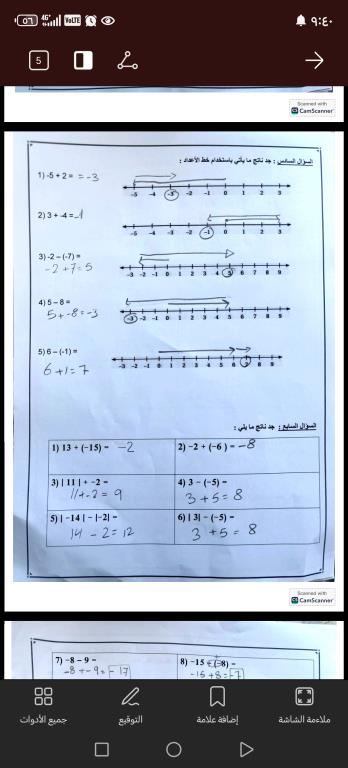 ٩:٤٠
٥٦
4G
VoLTE
5
Scanned with
CamScanner
السؤال السادس : جد ناتج ما يأتي باستخدام خط الأعداد :
1) -5 + 2 = = -3
-5 -4 -3 -2 -1 0 1 2 3
2) 3 + -4 = -1
-5 -4 -3 -2 -1 0 1 2 3
3) -2 – (-7) =
-2 + 7 = 5
-3 -2 -1 0 1 2 3 4 5 6 7 8 9
4) 5 – 8 =
5 + -8 = -3
-3 -2 -1 0 1 2 3 4 5 6 7 8 9
5) 6 – (-1) =
6 + 1 = 7
-3 -2 -1 0 1 2 3 4 5 6 7 8 9
السؤال السابع : جد ناتج ما يلي :
1) 13 + (-15) = -2
2) -2 + (-6 ) = -8
3) | 11 | + -2 =
11 + -2 = 9
4) 3 – (-5) =
3 + 5 = 8
5) | -14 | – |-2| =
14 - 2 = 12
6) | 3| – (-5) =
3 + 5 = 8
Scanned with
CamScanner
7) -8 – 9 =
-8 + -9 = -17
8) -15 – (-8) =
-15 + 8 = -7
ملاءمة الشاشة
إضافة علامة
التوقيع
جميع الأدوات